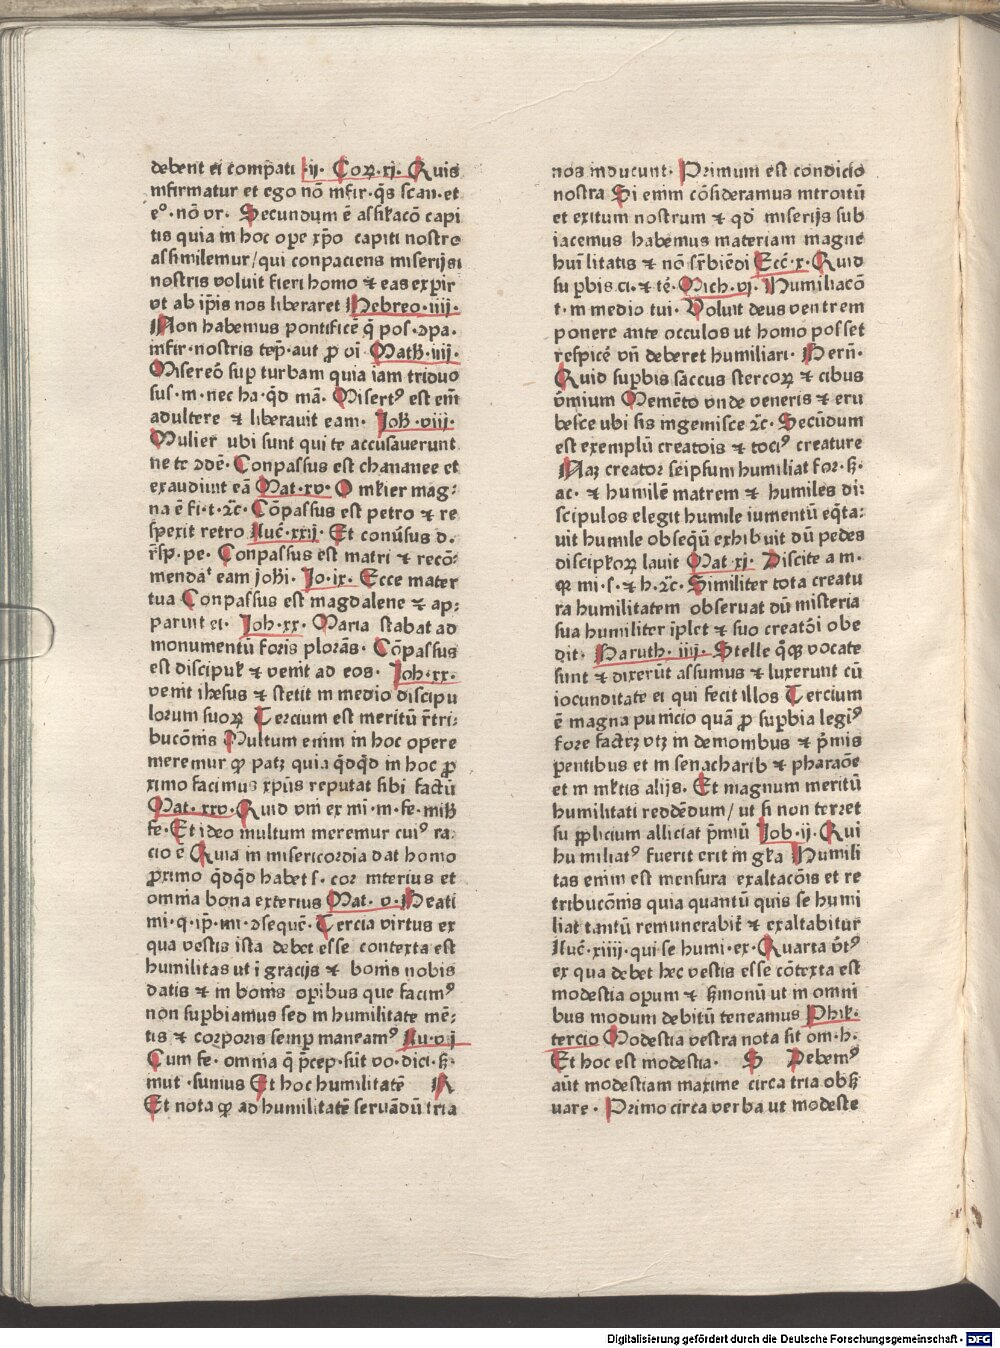 debent ei compati ·ij· Corꝝ·xj· Quis
infirmatur et ego nō infir·q̄s scan·et
e°·nō vr· Secundum ē assil̄acōn capi
tis quia in hoc ope xp̄o capiti nostro
assimilemur/qui conpaciens miserijs
nostris voluit fieri homo ⁊ eas expir
vt ab ip̄is nos liberaret Hebreo·iiij·
Non habemus pontificē q̄ pos·ꝯpa·
infir·nostris tep̄·aut ꝓ oī Math·iiij·
Misereō sup turbam quia iam triduo
sus·m·nec ha·q̄d mā· Misertꝰ est eīn
adultere ⁊ liberauit eam· Joh·viij·
Mulier ubi sunt qui te accusauerunt
ne te ꝯdē· Conpassus est chananee et
exaudiuit eā Mat·xv· O mlier mag:
na ē fi·t·⁊c· Cōpassus est petro ⁊ re
spexit retro Luc̄·xxij· Et conūsus d·
r̄sp·pe· Conpassus est matri ⁊ recō:
mendaᵗ eam johi· Jo·ix· Ecce mater
tua Conpassus est magdalene ⁊ ap:
paruit ei· Joh·xx· Maria stabat ad
monumentū foris plorās· Cōpassus
est discipul̄ ⁊ venit ad eos· Joh·xx·
venit ihesus ⁊ stetit in medio discipu
lorum suoꝝ Tercium est meritū r̄tri:
bucōnis Multum enim in hoc opere
meremur ꝙ patꝫ quia q̄dq̄d in hoc ꝓ
ximo facimus xp̄us reputat sibi factū
Mat·xxv· Quid vni ex mi·m·fe·mih
fe·Et ideo multum meremur cuiꝰ ra
cio ē Quia in misericordia dat homo
ꝓximo q̄dq̄d habet s· cor interius et
omnia bona exterius Mat·v·Beati
mi·q·ip̄·mi·ꝯsequē· Tercia virtus ex
qua vestis ista debet esse contexta est
humilitas ut ī gracijs ⁊ bonis nobis
datis ⁊ in bonis opibus que facimꝰ
non supbiamus sed in humilitate mē:
tis ⁊ corporis semp maneamꝰ Lu·vij
Cum fe·omnia q̄ p̄cep·sūt vo·dici·ẜ·
inut·sunius Et hoc humilitatē R
Et nota ꝙ ad humilitatē seruādū tria
nos inducunt· Primum est condicio
nostra Si enim cōsideramus introitū
et exitum nostrum ⁊ qd̄ miserijs sub
iacemus habemus materiam magne
hum̄litatis ⁊ nō sr̄biēdi Ecc̄·x· Quid
supbis ci·⁊ tē· Mich·vj· Humiliacō
t·in medio tui· Voluit deus ventrem
ponere ante occulos ut homo posset
respicē vn̄ deberet humiliari· Bern̄·
Quid supbis saccus stercorꝝ ⁊ cibus
v̄mium Memēto vnde veneris ⁊ eru
besce ubi sis ingemisce ⁊c· Secūdum
est exemplū creatois ⁊ tociꝰ creature
Naꝫ creator seipsum humiliat for·ẜ·
ac· ⁊ humilē matrem ⁊ humiles di:
scipulos elegit humile iumentū eq̄ta:
uit humile obseq̄ū exhibuit dū pedes
discipl̄oꝝ lauit Mat·xj· Discite a m·
qꝛ mi·s·⁊ h·⁊c· Similiter tota creatu
ra humilitatem obseruat dū misteria
sua humiliter īplet ⁊ suo creatōi obe
dit· Baruth·iiij· Stelle q̄ꝙ vocate
sunt ⁊ dixerūt assumus ⁊ luxerunt cū
iocunditate ei qui fecit illos Tercium
ē magna punicio quā ꝓ supbia legiꝰ
fore factꝫ vtꝫ in demonibus ⁊ p̄mis
pentibus et in senacharib ⁊ pharaōe
et in ml̄tis alijs· Et magnum meritū
humilitati reddēdum/ut si non terret
supplicium alliciat p̄miū Job·ij· Qui
humiliatꝰ fuerit erit in gl̄a Humili
tas enim est mensura exaltacōis et re
tribucōnis quia quantū quis se humi
liat tantū remunerabit̄ ⁊ exaltabitur
Luc̄·xiiij·qui se humi·ex·Quarta v̄tꝰ
ex qua debet hec vestis esse cōtexta est
modestia opum ⁊ ẜmonū ut in omni
bus modum debitū teneamus Phil̄·
tercio Modestia vestra nota sit om·h·
Et hoc est modestia· S Debemꝰ
aūt modestiam maxime circa tria obẜ
uare· Primo circa verba ut modeste
Digitalisierung gefördert durch die Deutsche Forschungsgemeinschaft · DFG